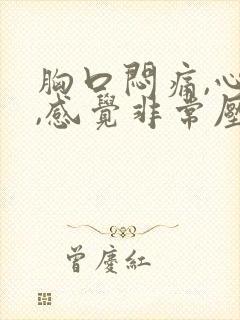 胸口悶痛,心
,感覺非常壓
曾慶紅